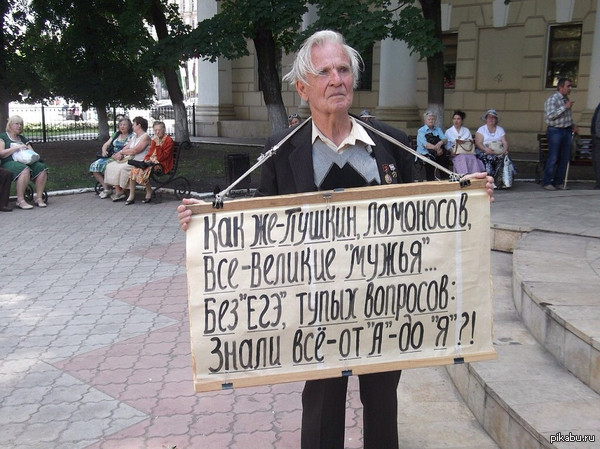 Как же-Пушкин, Ломоносов,
Все-великие "мужья"...
Без "ЕГЭ", тупых вопросов:
Знали всё-от "А"-до "Я"?!
pikabu.ru